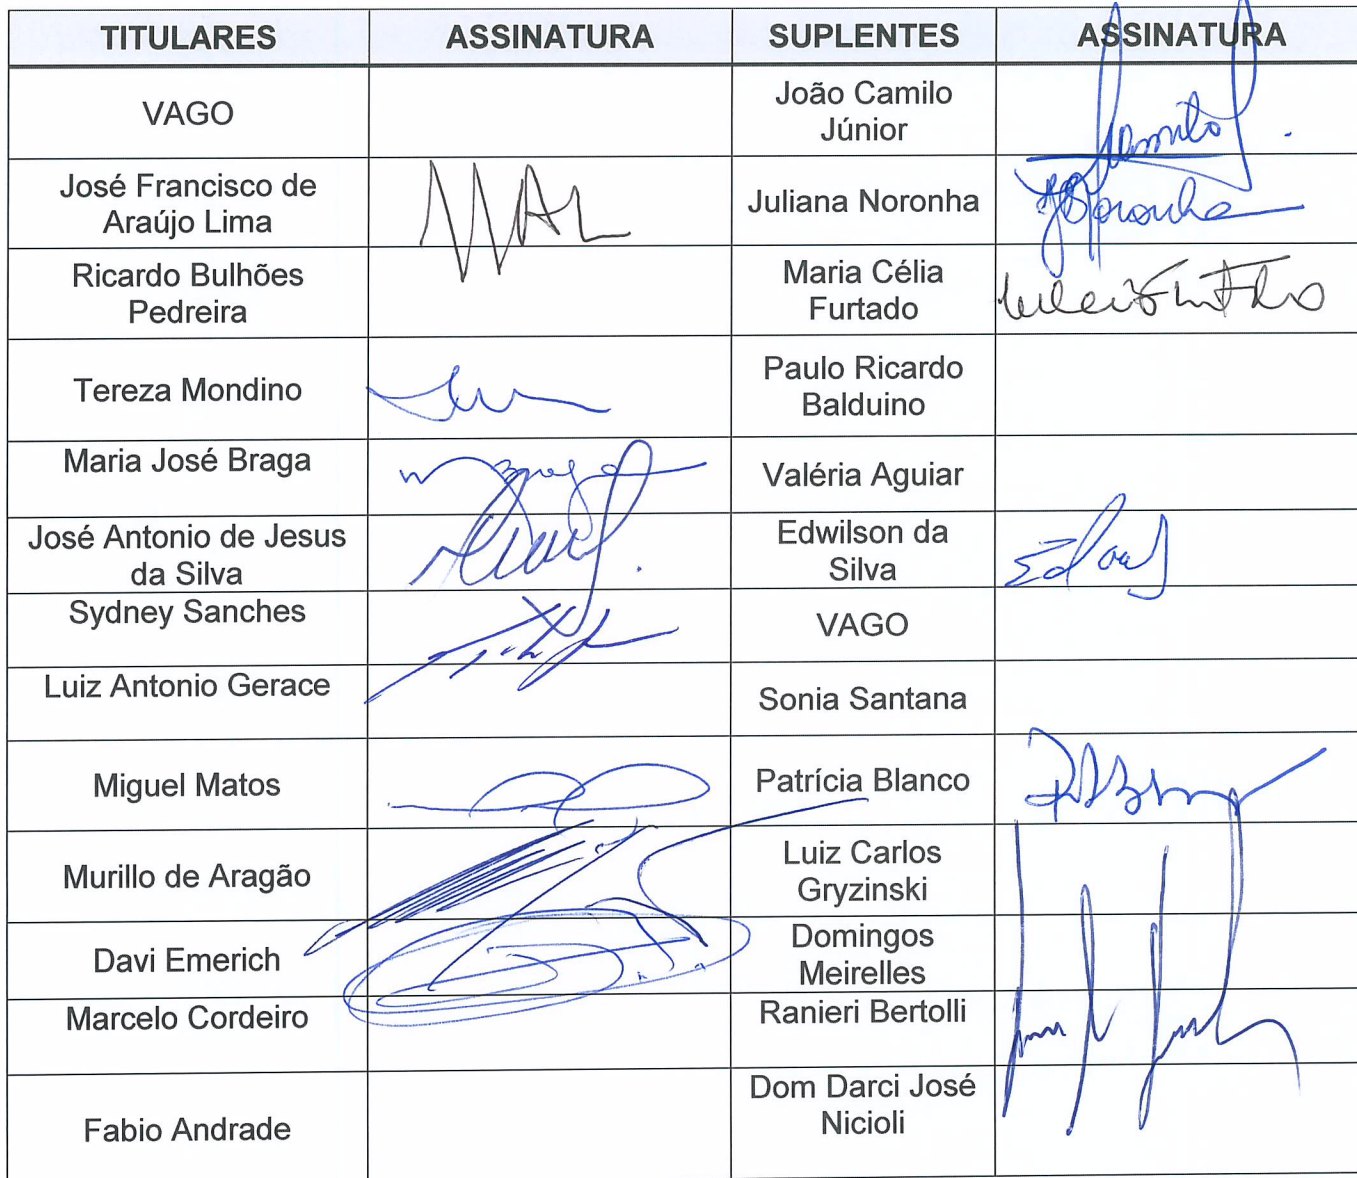 TITULARES ASSINATURA SUPLENTES ASSINATURA
VAGO João Camilo
Júnior
José Francisco de
Araújo Lima Juliana Noronha
Ricardo Bulhões
Pedreira Maria Célia
Furtado
Tereza Mondino Paulo Ricardo
Balduino
Maria José Braga Valéria Aguiar
José Antonio de Jesus
da Silva Edwilson da
Silva
Sydney Sanches VAGO
Luiz Antonio Gerace Sonia Santana
Miguel Matos Patrícia Blanco
Murillo de Aragão Luiz Carlos
Gryzinski
Davi Emerich Domingos
Meirelles
Marcelo Cordeiro Ranieri Bertolli
Fabio Andrade Dom Darci José
Nicioli